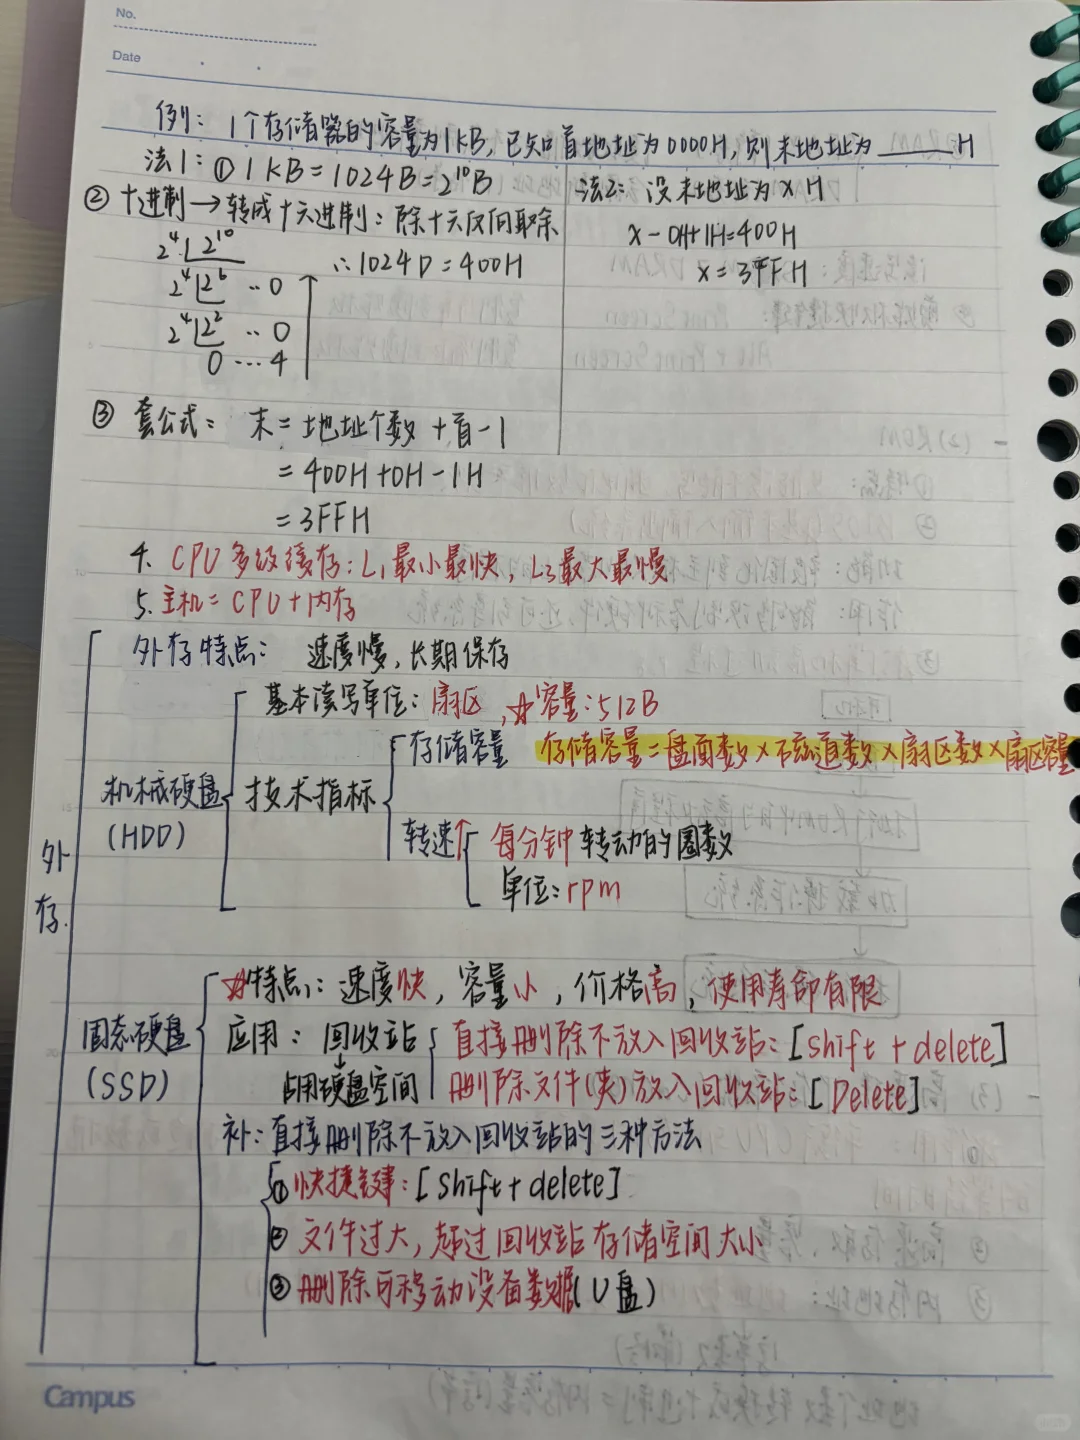 No.
Date
例：1个存储器的容量为1KB，已知首地址为0000H，则末地址为____H
法1：① 1KB=1024B=2¹⁰B
② 十进制→转成十六进制：除十六反向取余
2⁴ 2¹⁰
2⁴ 2⁶ ··0
2⁴ 2² ··0
0 ···4
∴1024D=400H
法2：设末地址为XH
X-0H+1H=400H
X=3FFH
③ 套公式：末=地址个数+首-1
=400H+0H-1H
=3FFH
4. CPU多级缓存：L₁最小最快，L₃最大最慢
5. 主机=CPU+内存
外存
外存特点：速度慢，长期保存
机械硬盘(HDD)
基本读写单位：扇区，☆容量：512B
技术指标
存储容量 存储容量=盘面数×磁道数×扇区数×扇区容量
转速↑ 每分钟转动的圈数
单位：rpm
固态硬盘(SSD)
☆特点：速度快，容量小，价格高，使用寿命有限
应用：回收站 直接删除不放入回收站：[shift+delete]
↓
占用硬盘空间 删除文件(夹)放入回收站：[Delete]
补：直接删除不放入回收站的三种方法
① 快捷键：[shift+delete]
② 文件过大，超过回收站存储空间大小
③ 删除可移动设备数据(U盘)
Campus